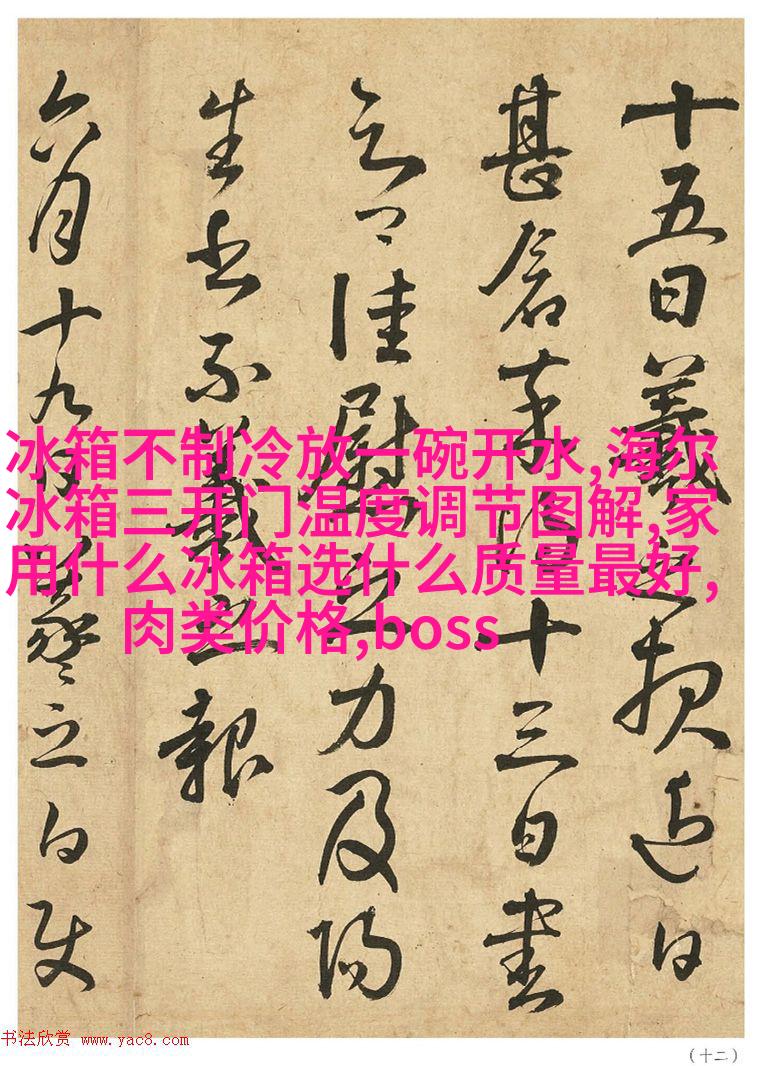 十五日羲之頓近日
甚念得十三日書
佳慰之力及
生不羲之報
六月十九日羲之白使
冰箱不制冷放一碗开水,海尔
冰箱三开门温度调节图解,家
用什么冰箱选什么质量最好,
肉类价格,boss
书法欣赏 www.yac8.com
(十二)